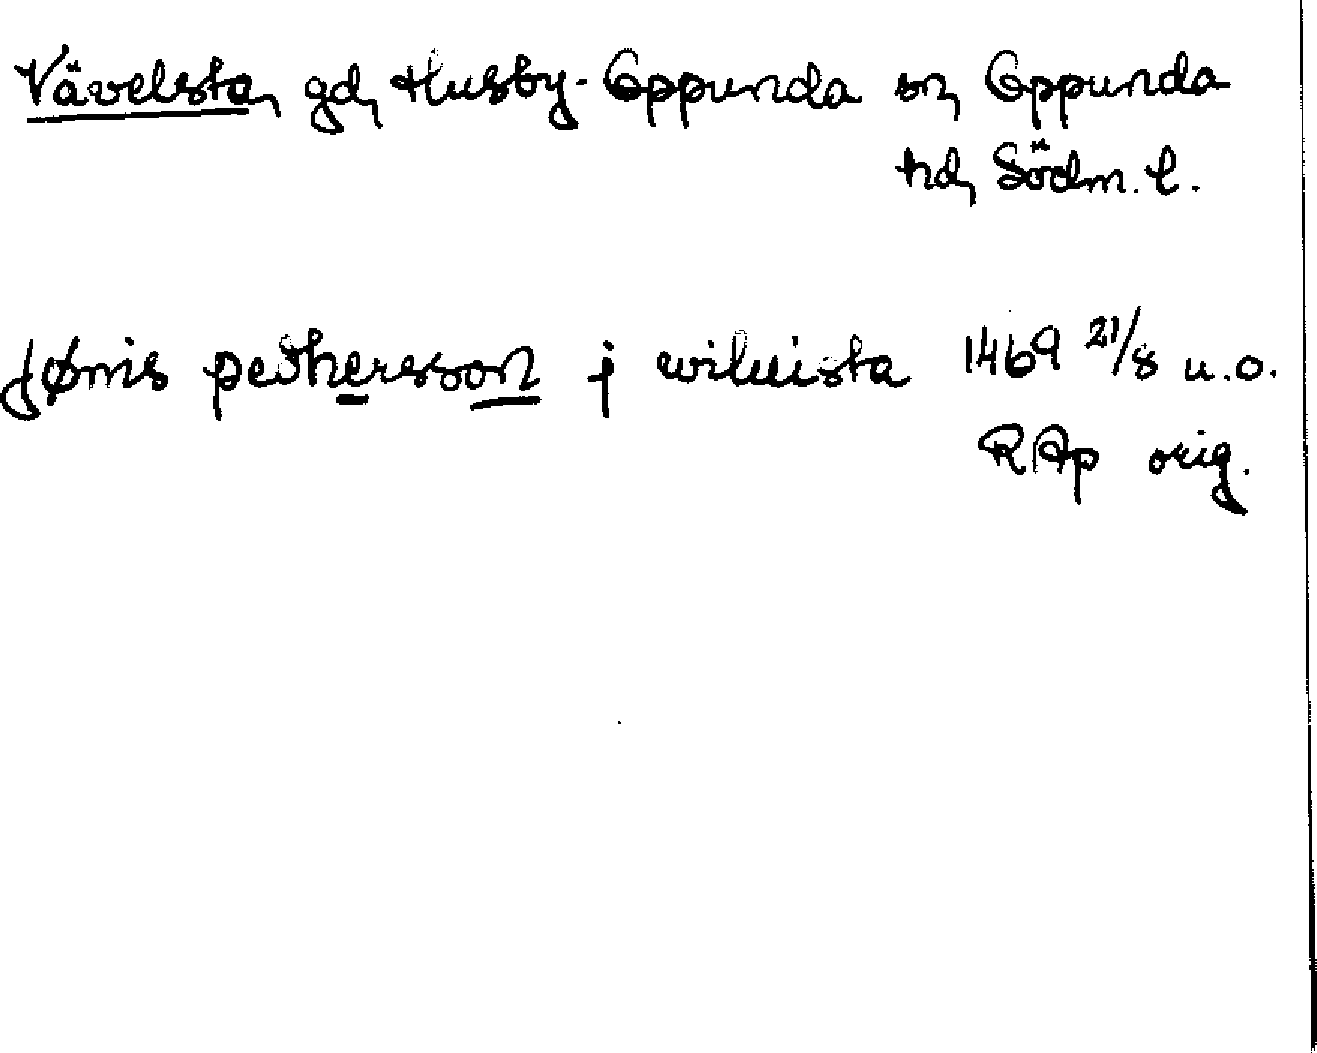 Vävelsta, gd, Husby-Oppunda sn, Oppunda
hd, Södm. l.
Jønis pethersson j wiluista 1469 21/8 u.o.
RAp orig.